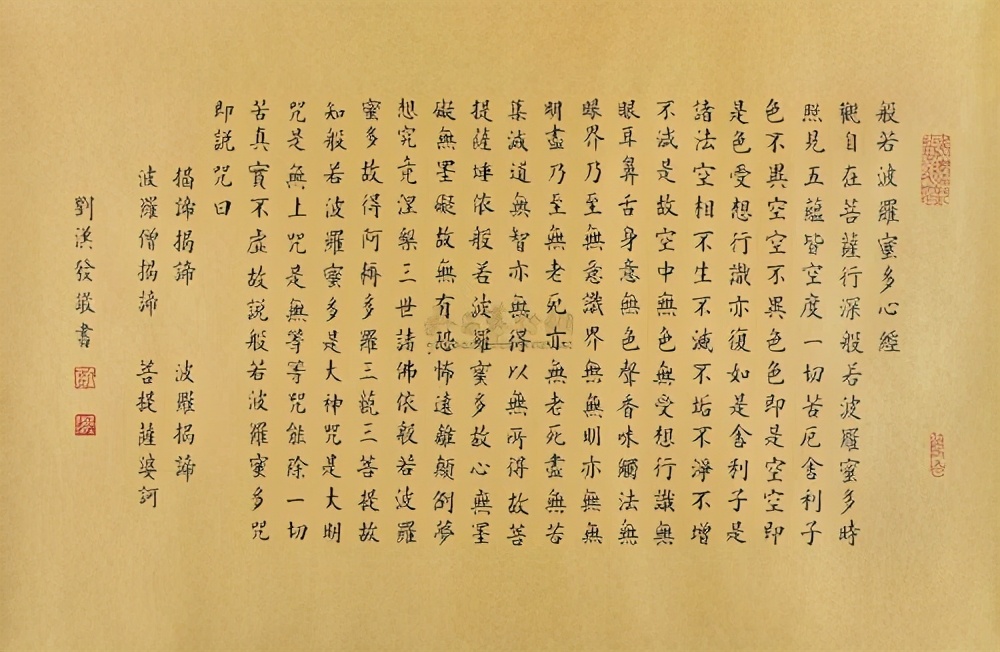 般若波羅蜜多心經
觀自在菩薩行深般若波羅蜜多時
照見五蘊皆空度一切苦厄舍利子
色不異空空不異色色即是空空即
是色受想行識亦復如是舍利子是
諸法空相不生不滅不垢不淨不增
不減是故空中無色無受想行識無
眼耳鼻舌身意無色聲香味觸法無
眼界乃至無意識界無無明亦無無
明盡乃至無老死亦無老死盡無苦
集滅道無智亦無得以無所得故菩
提薩埵依般若波羅蜜多故心無罣
礙無罣礙故無有恐怖遠離顛倒夢
想究竟涅槃三世諸佛依般若波羅
蜜多故得阿耨多羅三藐三菩提故
知般若波羅蜜多是大神咒是大明
咒是無上咒是無等等咒能除一切
苦真實不虛故說般若波羅蜜多咒
即說咒曰
揭諦揭諦 波羅揭諦
波羅僧揭諦 菩提薩婆訶
劉漢發敬書